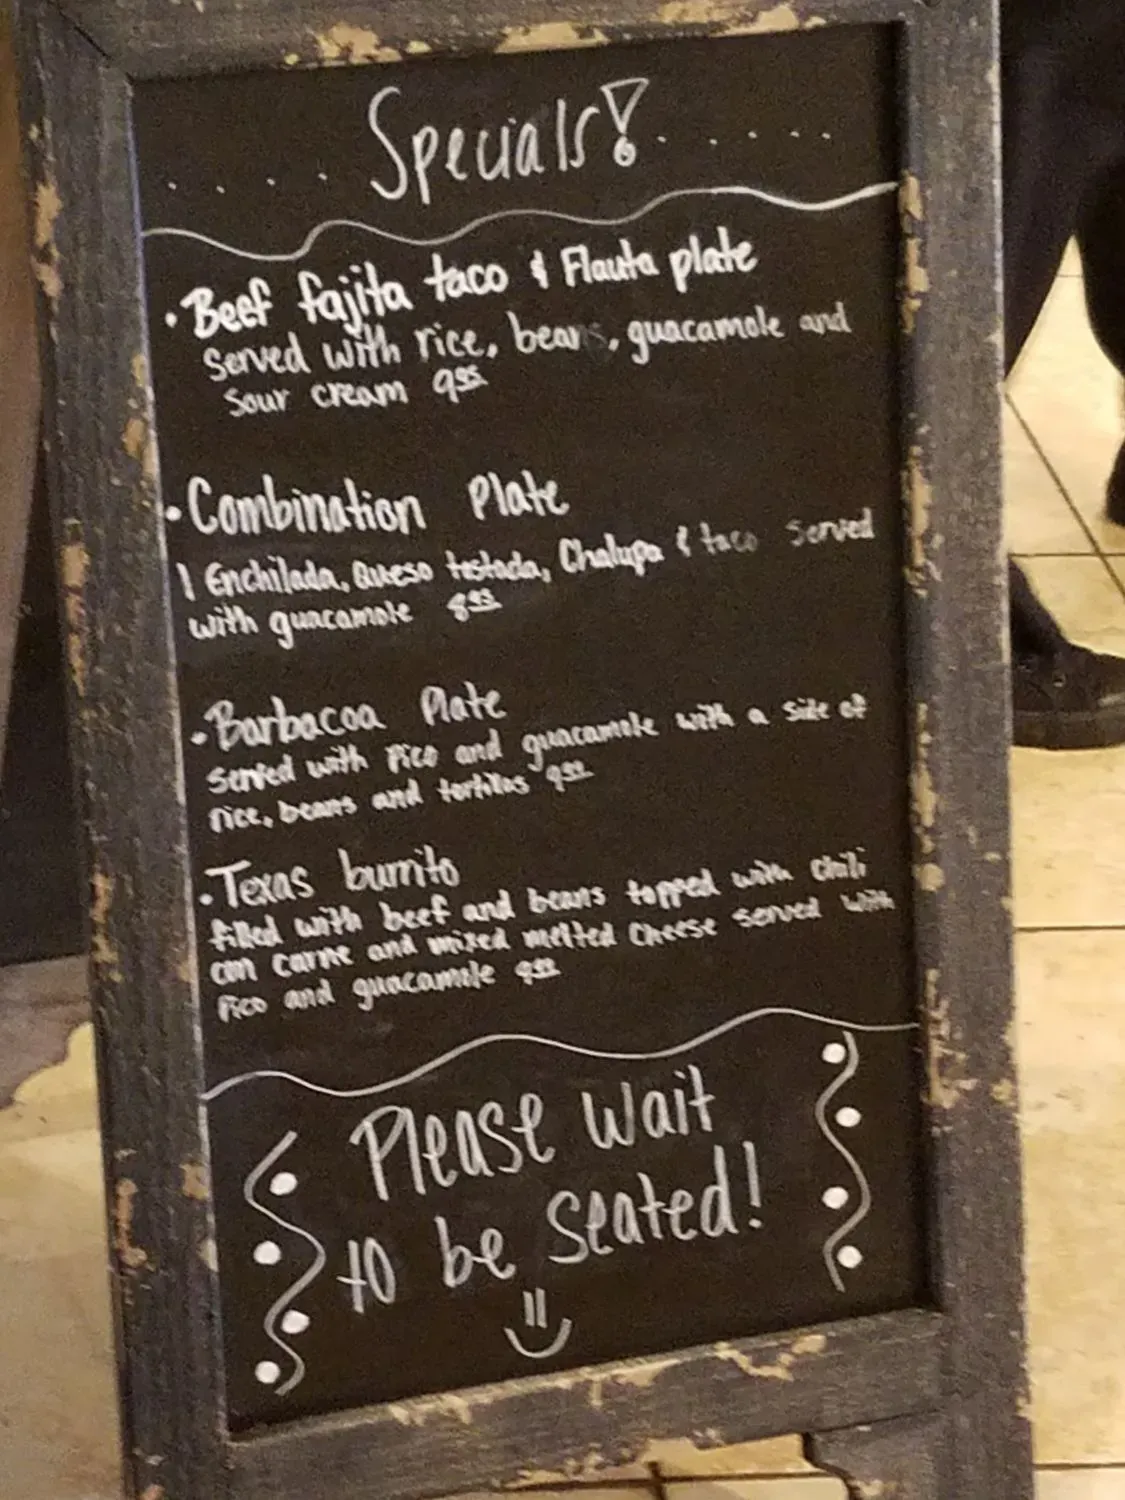 Specials!
• Beef fajita taco & Flauta plate
served with rice, beans, guacamole and
sour cream
• Combination Plate
1 Enchilada, Queso tostada, Chalupa & taco served
with guacamole
• Barbacoa Plate
served with Pico and guacamole with a side of
rice, beans and tortillas
• Texas burrito
filled with beef and beans topped with chili
con carne and mixed melted cheese served with
Pico and guacamole
Please wait
to be seated!